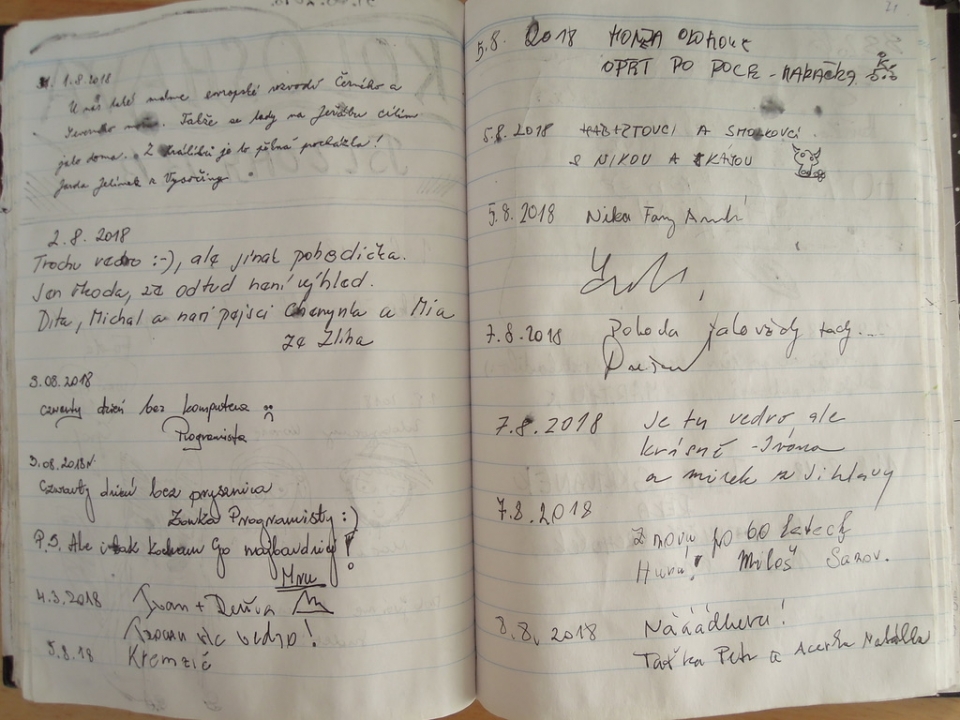 1.8.2018
U nás také máme evropské rozvodí Černého a
Severního moře. Takže se tady na Jeřábu cítím
jako doma. Z Králíků je to pěkná procházka!
Jarda Jelínek z Vysočiny
2.8.2018
Trochu vedro :-), ale jinak pohodička.
Jen škoda, že odtud není výhled.
Dita, Michal a naši pejsci Cheny a Mia
ze Zlína
3.08.2018
czwarty dzień bez komputera
Programista
3.08.2018r.
Czwarty dzień bez prysznica
Żonka Programisty :)
P.S. Ale i tak kocham Go najbardziej!
Mru
4.8.2018 Ivan + Deniva
vedro!
5.8.18
5.8. 2018 HONZA OLOMOUC
OPRT PO ROCE - MAKAČKA
5.8.2018 A SMOLKOVCI
S NIKOU A KÁJOU
5.8.2018 Nika Fany Andri
7.8.2018 Pohoda jako vždy tady...
7.8.2018 Je tu vedro, ale
krásně - Ivana
a mirek z Jihlavy
7.8.2018
Znovu po 60 letech
Hurá! Miloš Sazov.
8.8.2018 Nááádhera!
Taťka Petr a